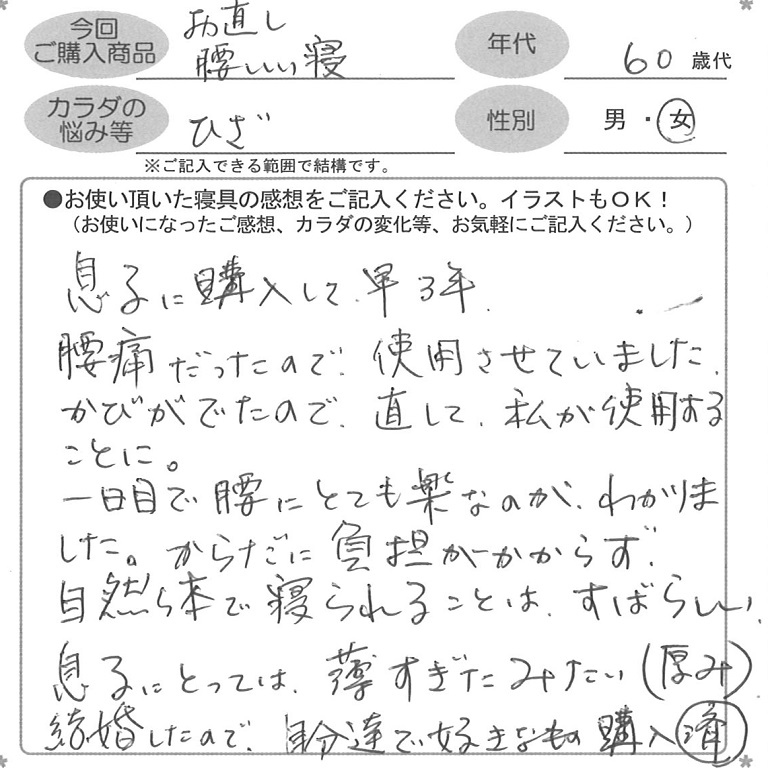 今回
ご購入商品
お直し
腰いい寝
年代
60歳代
カラダの
悩み等
ひざ
性別
男・女
※ご記入できる範囲で結構です。
●お使い頂いた寝具の感想をご記入ください。イラストもOK！
（お使いになったご感想、カラダの変化等、お気軽にご記入ください。）
息子に購入して、早3年.
腰痛だったので、使用させていました.
かびがでたので、直して、私が使用する
ことに。
一日目で腰にとても楽なのが、わかりま
した。からだに負担がかからず、
自然体で寝られることは、すばらしい.
息子にとっては、薄すぎたみたい(厚み)
結婚したので、自分達で好きなもの購入済